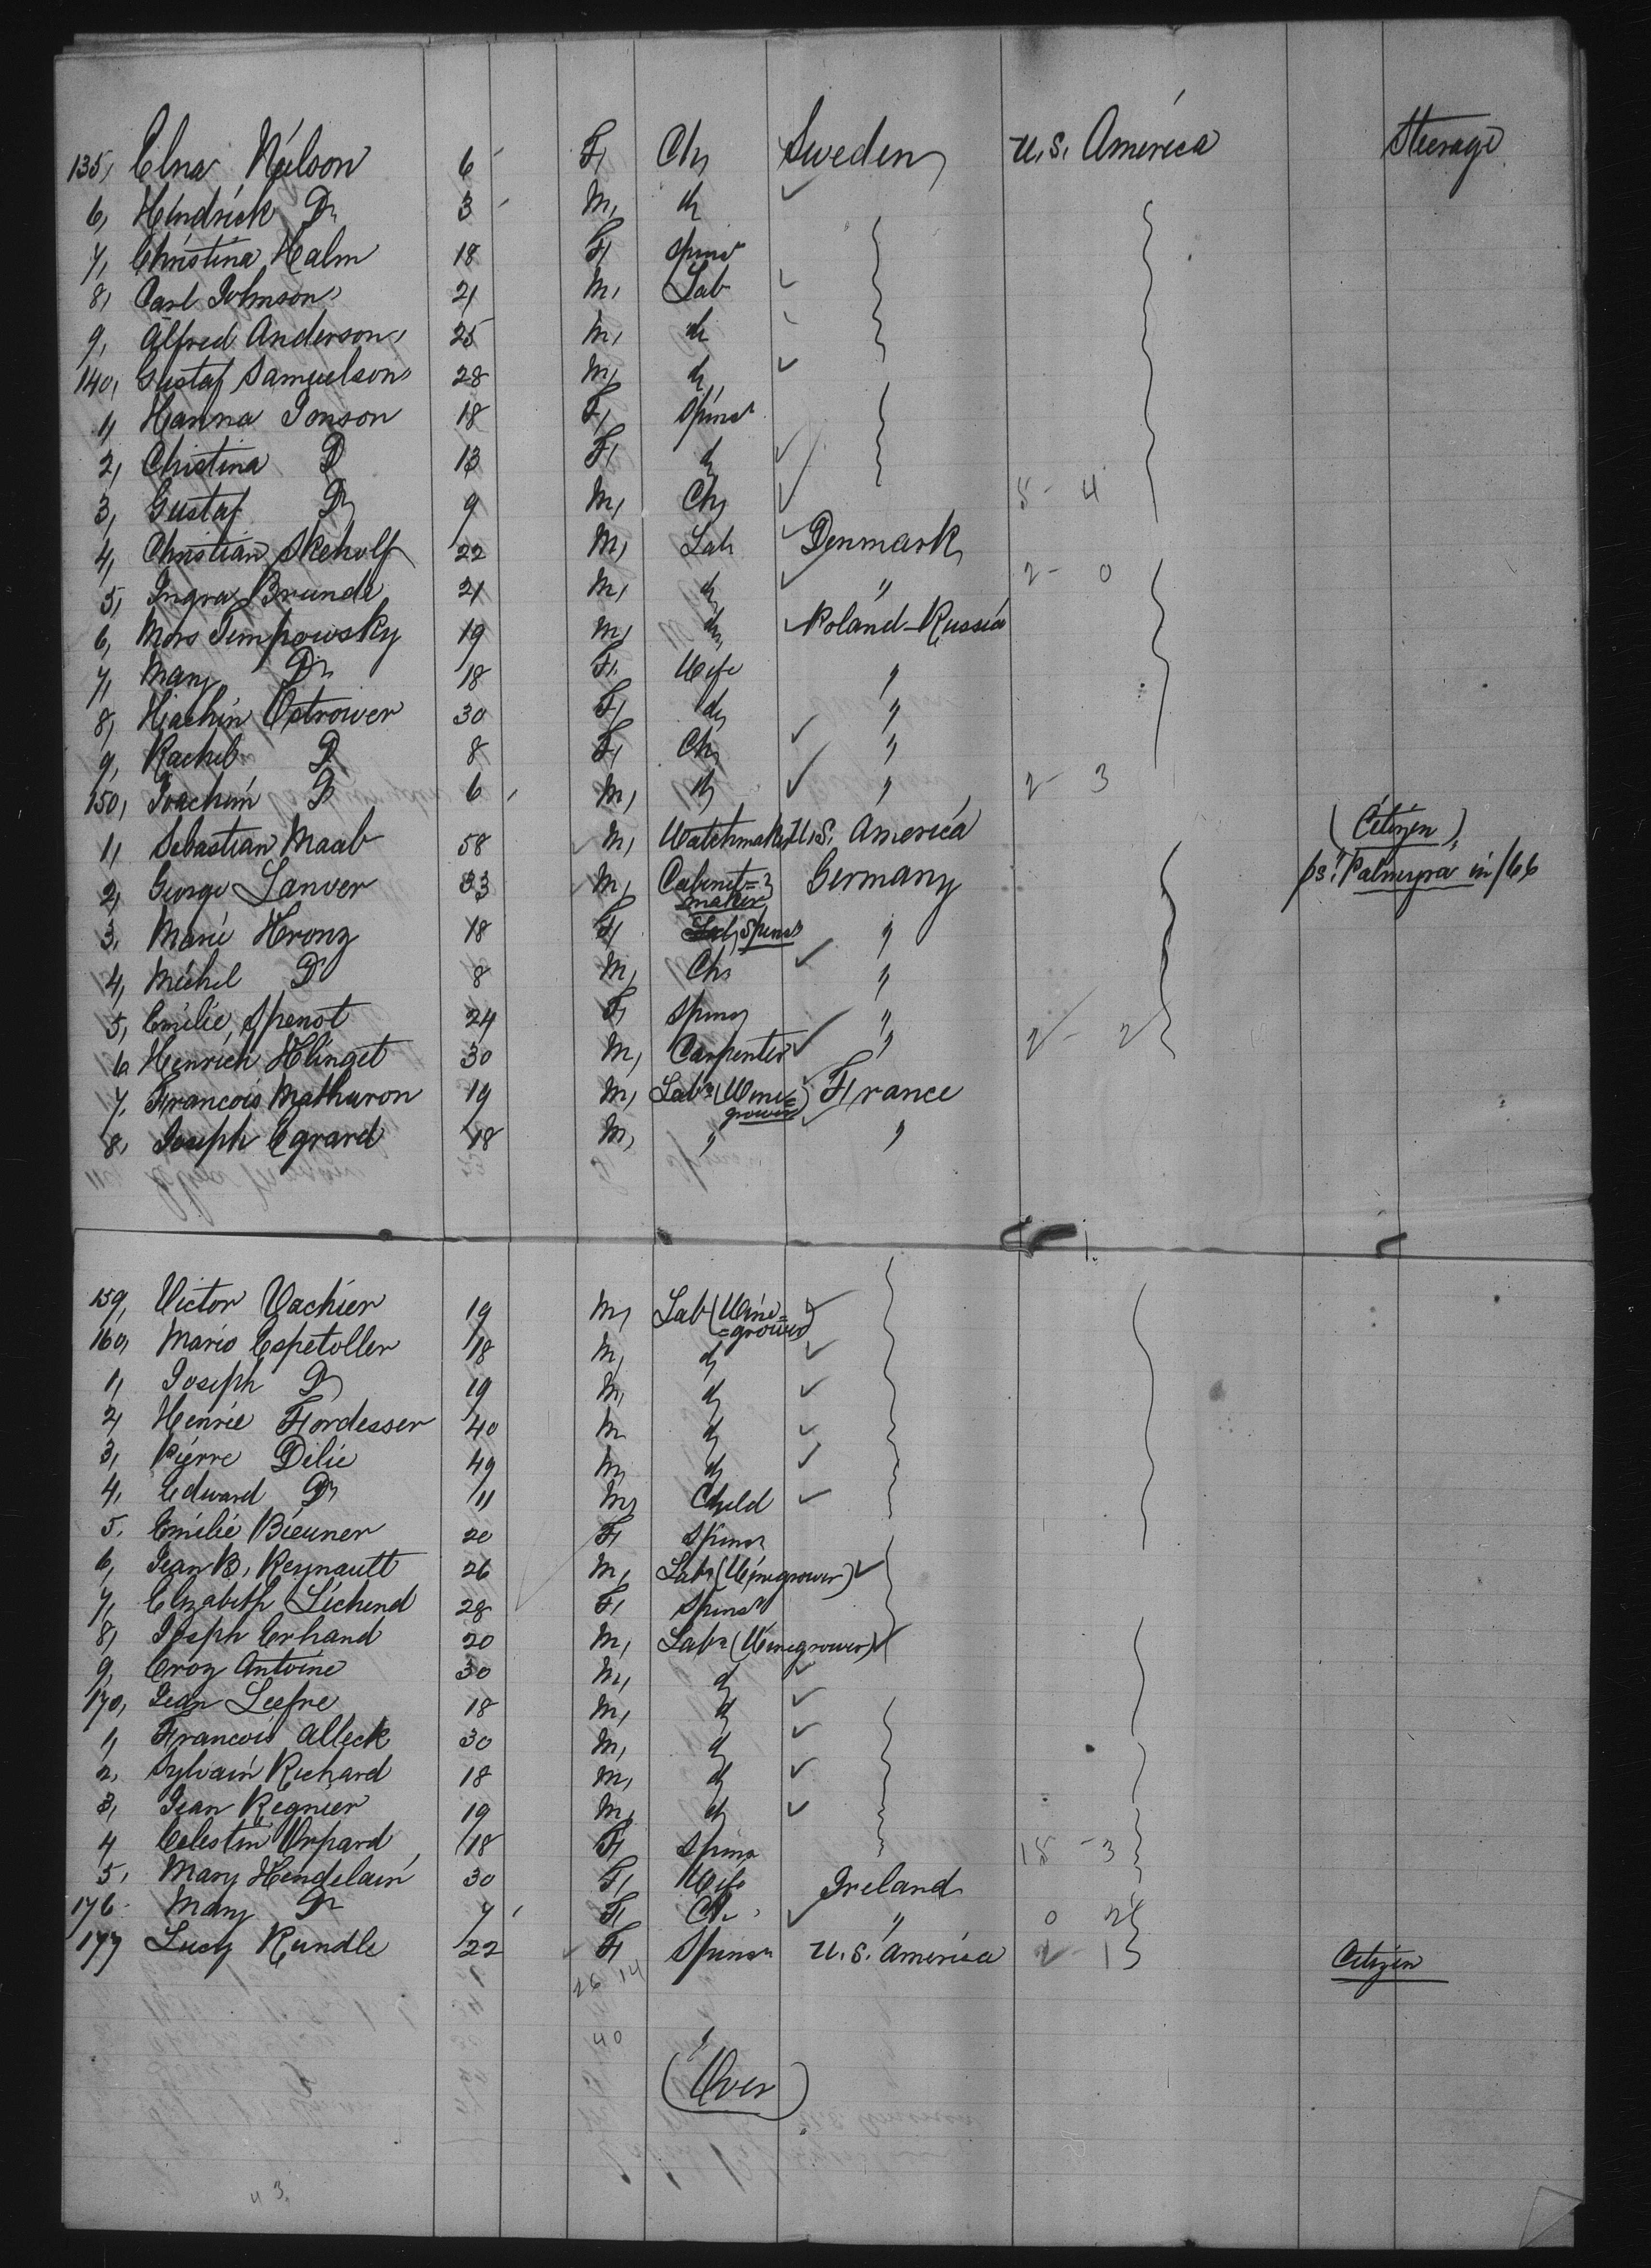 135, Elna Nielson 6 F, Ch, Sweden, U.S. America Steerage
6, Hindrick Do 3 M, do
7, Christina Halm 18 F, Spinsr
8, Carl Johnson 21 M, Lab
9, Alfred Anderson 25 M, do
140, Gustaf Samuelson 28 M, do
1, Hanna Jonson 18 F, Spinsr
2, Christina Do 13 F, do
3, Gustaf Do 9 M, Ch, 5 - 4
4, Christian Skeholf 22 M, Lab Denmark
5, Ingra Brunda 21 M, do " 2 - 0
6, Mors Timpowsky 19 M, do Poland-Russia
7, Mary Do 18 F, Wife "
8, Hachin Ostrower 30 F, do "
9, Rachel Do 8 F, Ch, "
150, Joachim Do 6 M, do " 2 - 3
1, Sebastian Maab 58 M, Watchmaker U.S. America (Citizen),
2, George Lanver 33 M, Cabinet= Germany ps. "Palmyra in /66
maker
3, Marie Hronz 18 F, Spinsr "
4, Michel Do 8 M, Ch, "
5, Emilie Spenot 24 F, Spinsr " 2 - 2
6 Henrich Hlinget 30 M, Carpenter "
7, Francois Mathuron 19 M, Labr (Wine= France
grower)
8, Joseph Egrard 18 M, " "
159, Victor Vachier 19 M, Lab (Wine=
=grower)
160, Mario Espetoller 18 M, do
1, Joseph Do 19 M, do
2, Henrie Fordesser 40 M do
3, Pierre Delie 49 M, do
4, Edward Do 11 M, Child
5, Emilie Bieuner 20 F, Spinsr
6, Jean B. Reynautt 26 M, Labr (Winegrower)
7, Elizabeth Lichend 28 F, Spinsr
8, Joseph Erhand 20 M, Labr (Winegrower)
9, Croz Antoine 30 M, do
170, Jean Leefre 18 M, do
1, Francois Alleck 30 M, do
2, Sylvain Richard 18 M, do
3, Jean Regnier 19 M, do
4 Celestin Orpard 18 F, Spinsr 15 - 3
5, Mary Hendelain 30 F, Wife Ireland
176 Mary Do 7 F, Ch, " 0 2
177 Lucy Rundle 22 F, Spinsr U.S. America 2 - 1 Citizen
26 14
40
(Over)